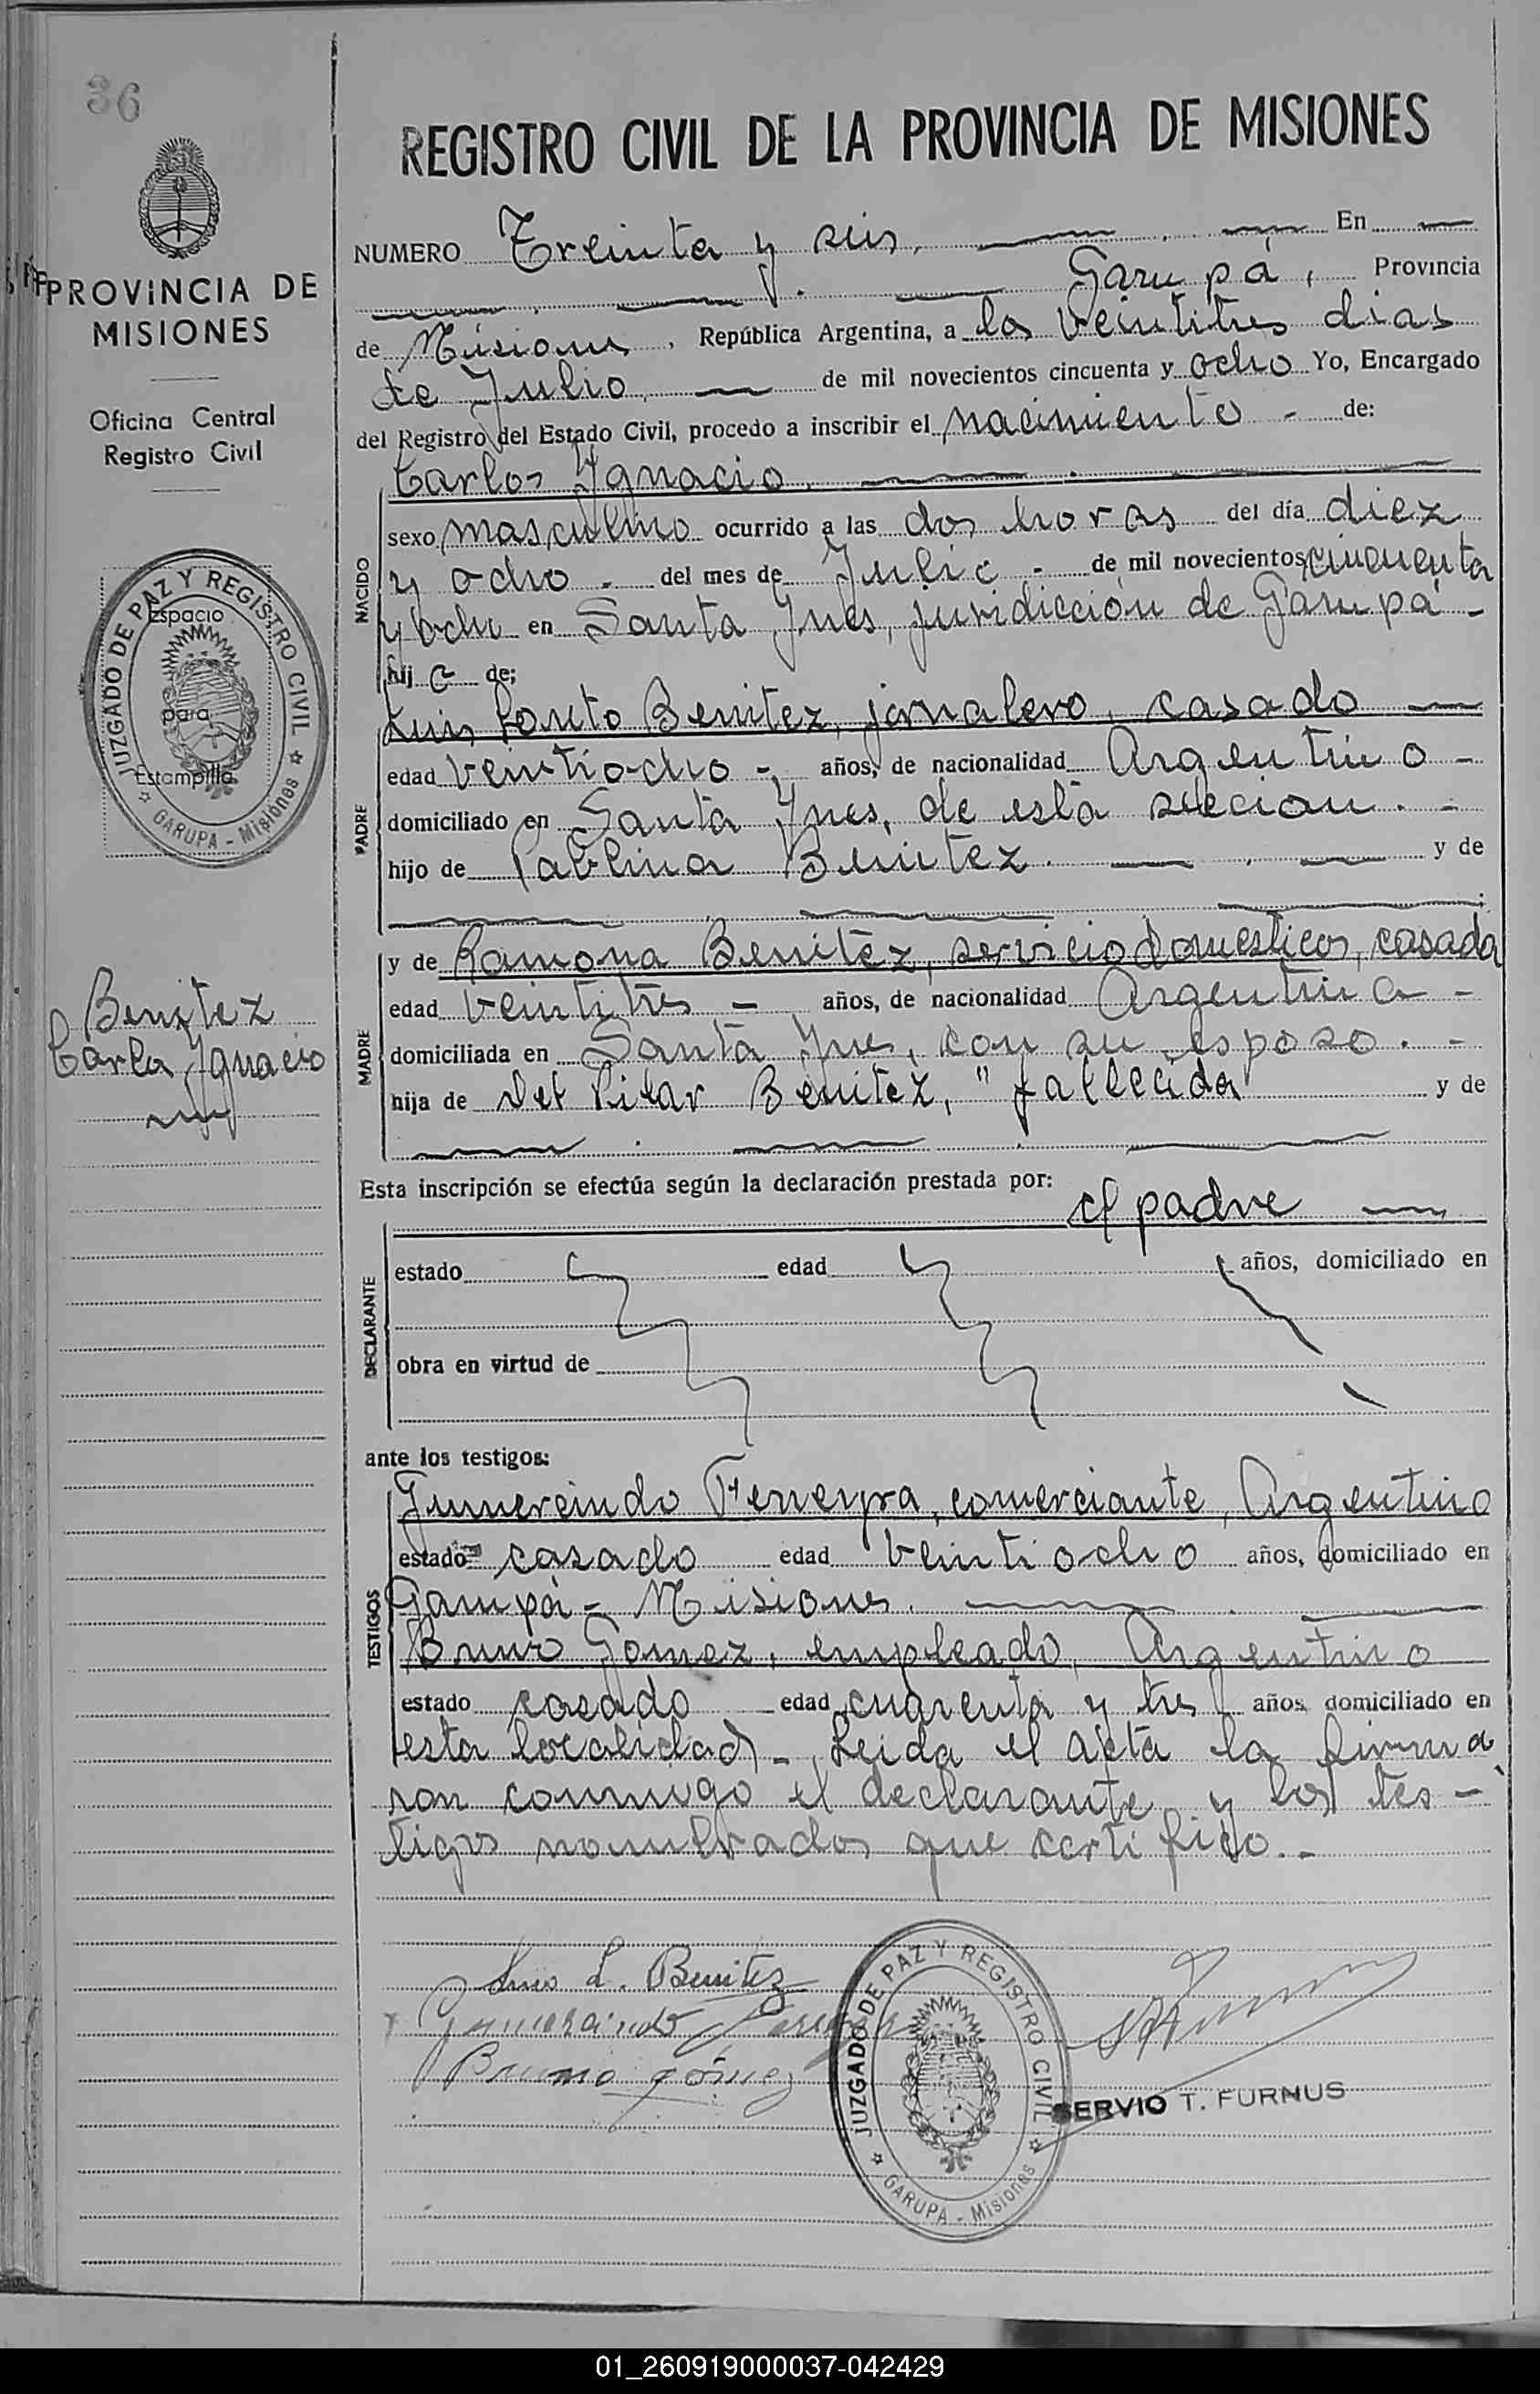 36
REGISTRO CIVIL DE LA PROVINCIA DE MISIONES
PROVINCIA DE
MISIONES
Oficina Central
Registro Civil
JUZGADO DE PAZ Y REGISTRO CIVIL
Espacio
para
Estampilla
GARUPA - Misiones
Benitez
Carlos Ygnacio
NUMERO Treinta y seis, En
Garupá, Provincia
de Misiones, República Argentina, a los veintitres dias
de Julio, de mil novecientos cincuenta y ocho Yo, Encargado
del Registro del Estado Civil, procedo a inscribir el nacimiento - de:
Carlos Ygnacio.
NACIDO
sexo masculino ocurrido a las dos horas del día diez
y ocho - del mes de Julio - de mil novecientos cincuenta
y ocho en Santa Ynes, juridicción de Garupá -
hijo de;
PADRE
Luis Benitez, jornalero, casado
edad veintiocho -, años, de nacionalidad Argentino -
domiciliado en Santa Ynes, de esta seccion. -
hijo de Pablina Benitez. y de
MADRE
y de Ramona Benitez, servicio domesticos, casada
edad veintitres - años, de nacionalidad Argentina -
domiciliada en Santa Ynes, con su esposo. -
hija de Del Pilar Benitez, "fallecida y de
Esta inscripción se efectúa según la declaración prestada por:
el padre
DECLARANTE
estado edad años, domiciliado en
obra en virtud de
ante los testigos:
TESTIGOS
Gumercindo Ferreyra, comerciante, Argentino
estado casado edad veintiocho años, domiciliado en
Garupá - Misiones.
Bruno Gomez, empleado, Argentino
estado casado edad cuarenta y tres años domiciliado en
esta localidad - Leida el acta la firma
ron conmigo el declarante y los tes -
tigos nombrados que certifico. -
Luis L. Benitez
Gumercindo Ferreyra
Bruno Gómez
JUZGADO DE PAZ Y REGISTRO CIVIL
GARUPA - Misiones
SERVIO T. FURNUS
01_260919000037-042429